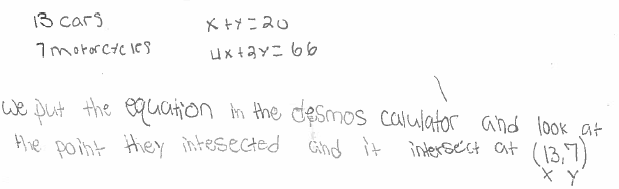 13 cars x+y=20
7 motorcycles 4x+2y=66
we put the equation in the desmos calulator and look at
the point they intesected and it intersect at (13,7)
x y